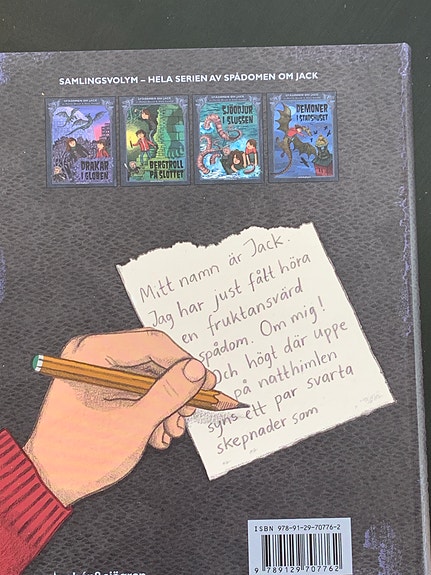 SAMLINGSVOLYM – HELA SERIEN AV SPÅDOMEN OM JACK
SPÅDOMEN OM JACK
DRAKAR
I GLOBEN
SPÅDOMEN OM JACK
BERGTROLL
PÅ SLOTTET
SPÅDOMEN OM JACK
SJÖODJUR
I SLUSSEN
SPÅDOMEN OM JACK
DEMONER
I STADSHUSET
Mitt namn är Jack.
Jag har just fått höra
en fruktansvärd
spådom. Om mig!
Och högt där uppe
på natthimlen
syns ett par svarta
skepnader som
ISBN 978-91-29-70776-2
9 789129 707762